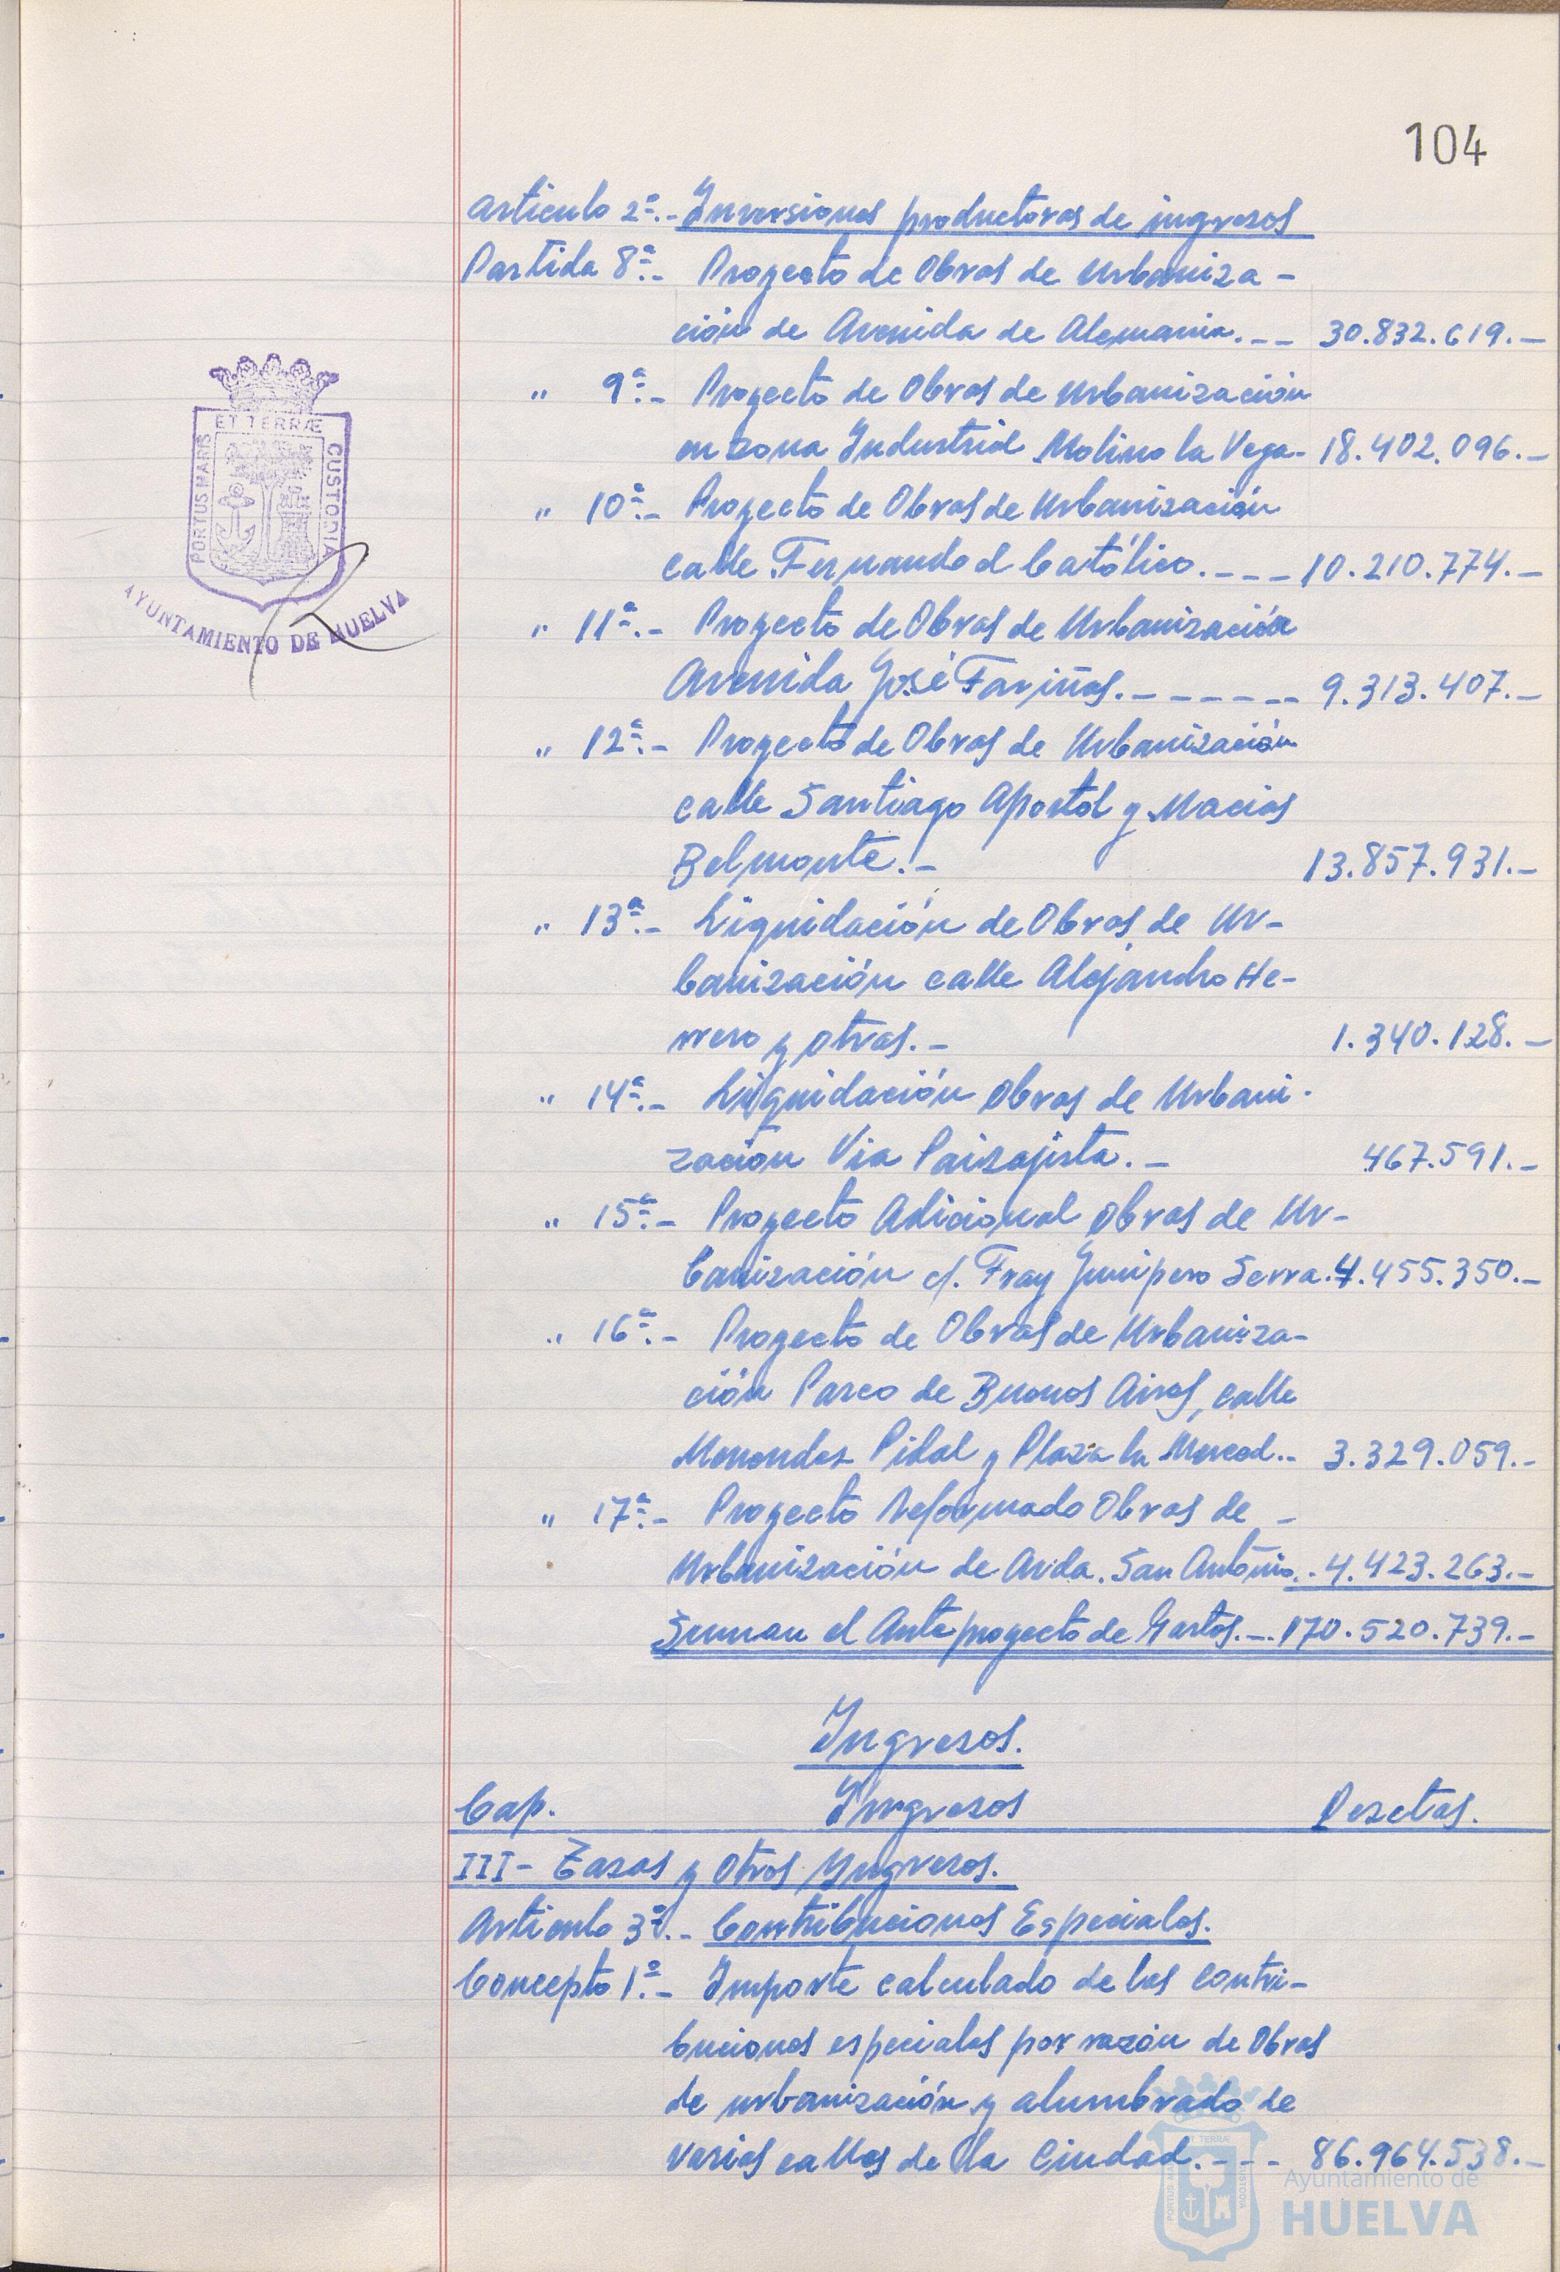 104
Artículo 2º.- Inversiones productoras de ingresos
Partida 8ª.- Proyecto de Obras de Urbaniza-
ción de Avenida de Alemania.--- 30.832.619.-
" 9ª.- Proyecto de Obras de Urbanización
en zona Industrial Molino la Vega- 18.402.096.-
" 10ª.- Proyecto de Obras de Urbanización
calle Fernando el Católico.--- 10.210.774.-
" 11ª.- Proyecto de Obras de Urbanización
Avenida José Fariñas.------- 9.313.407.-
" 12ª.- Proyecto de Obras de Urbanización
calle Santiago Apostol y Macias
Belmonte.- 13.857.931.-
" 13ª.- Liquidación de Obras de Ur-
banización calle Alejandro He-
rrero y otras.- 1.340.128.-
" 14ª.- Liquidación Obras de Urbani-
zación Via Paisajista.- 467.591.-
" 15ª.- Proyecto Adicional Obras de Ur-
banización c/. Fray Junipero Serra. 4.455.350.-
" 16ª.- Proyecto de Obras de Urbaniza-
ción Paseo de Buenos Aires, calle
Menendez Pidal y Plaza la Merced.- 3.329.059.-
" 17ª.- Proyecto Reformado Obras de -
Urbanización de Avda. San Antonio.. 4.423.263.-
Suman el Anteproyecto de Gastos.-. 170.520.739.-
Ingresos.
Cap. Ingresos Pesetas.
III- Tasas y Otros Ingresos.
Artículo 3º.- Contribuciones Especiales.
Concepto 1º.- Importe calculado de las contri-
buciones especiales por razón de Obras
de urbanización y alumbrado de
varias calles de la Ciudad.---- 86.964.538.-
PORTUS MARIS ET TERRÆ CUSTODIA
AYUNTAMIENTO DE HUELVA
Ayuntamiento de
HUELVA